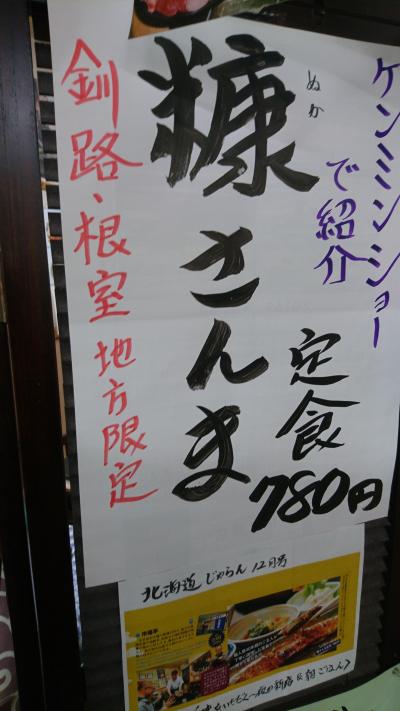 ケンミンショー
で紹介
糠さんま
ぬか
定食
780円
釧路、根室地方限定
北海道じゃらん12月号